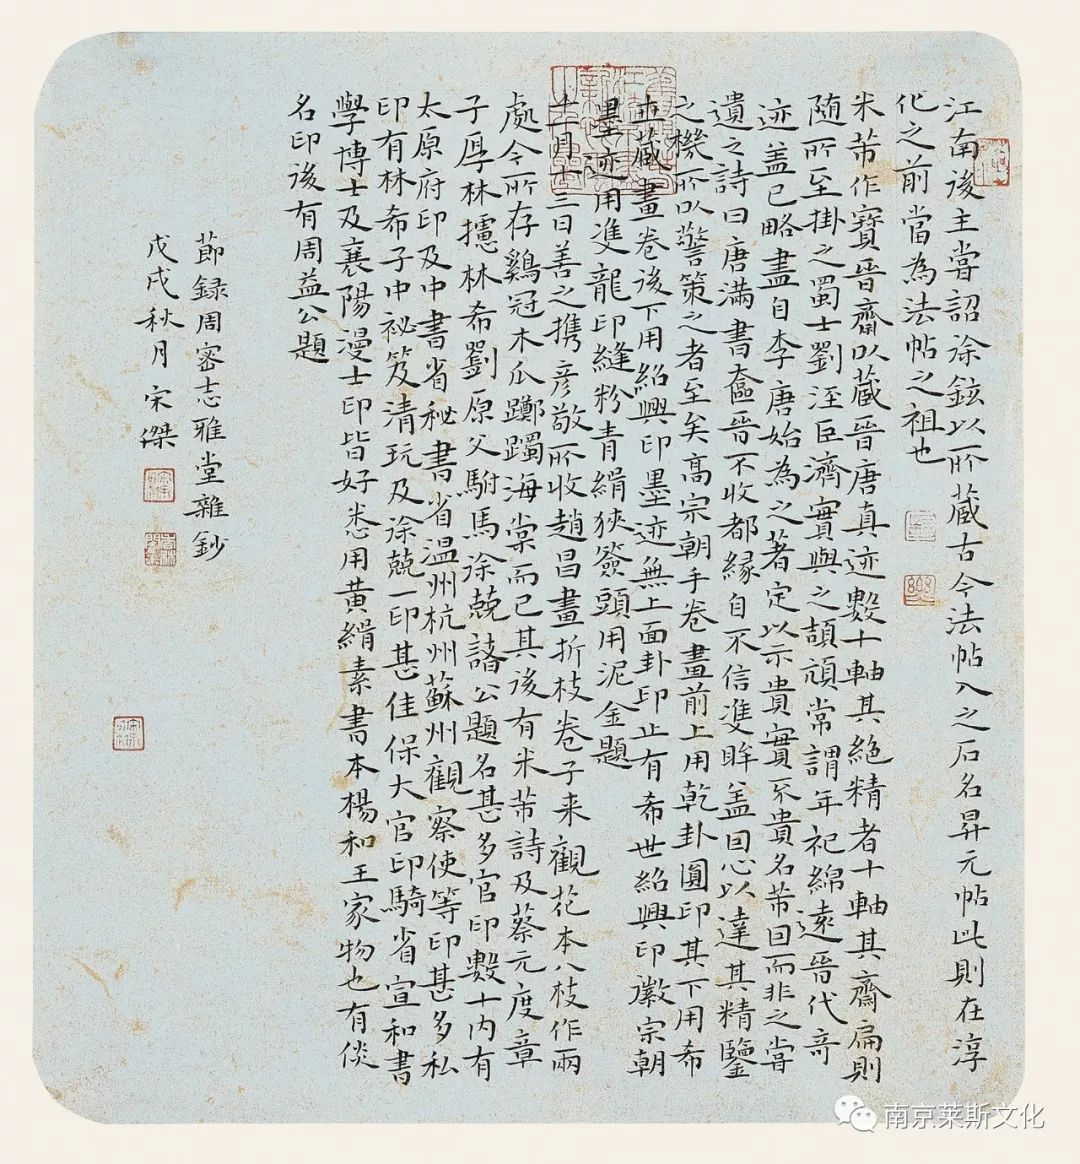 江南後主嘗詔徐鉉以所藏古今法帖入之石名昇元帖此則在淳
化之前當為法帖之祖也
米芾作寶晉齋以藏晉唐真迹數十軸其絕精者十軸其齋扁則
隨所至掛之蜀士劉涇巨濟實與之頡頏常謂年祀綿遠晉代奇
迹盖已略盡自李唐始為之著定以示貴實不貴名芾曰而非之嘗
遺之詩曰唐滿書奩晉不收都緣自不信雙眸盖因心以達其精鑒
之機所以警策之者至矣高宗朝手卷畫前上用乾卦圓印其下用希
世藏畫卷後下用紹興印墨迹無上面卦印止有希世紹興印徽宗朝
墨迹用雙龍印縫粉青絹狹簽頭用泥金題
十二月十三日善之携彦敬所收趙昌畫折枝卷子来觀花本八枝作兩
處今所存鷄冠木瓜躑躅海棠而已其後有米芾詩及蔡元度章
子厚林攄林希劉原父駙馬徐兢諸公題名甚多官印數十内有
太原府印及中書省秘書省温州杭州蘇州觀察使等印甚多私
印有林希子中祕笈清玩及徐兢一印甚佳保大官印騎省宣和書
學博士及襄陽漫士印皆好悉用黄絹素書本楊和王家物也有倓
名印後有周益公題
節録周密志雅堂雜鈔
戊戌秋月宋傑
南京莱斯文化